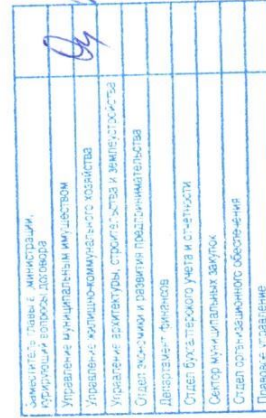 Заместитель главы администрации,
курирующий вопросы договора
Управление муниципальным имуществом
Управление жилищно-коммунального хозяйства
Управление архитектуры, строительства и землеустройства
Отдел экономики и развития предпринимательства
Департамент финансов
Отдел бухгалтерского учета и отчетности
Сектор муниципальных закупок
Отдел организационного обеспечения
Правовое управление